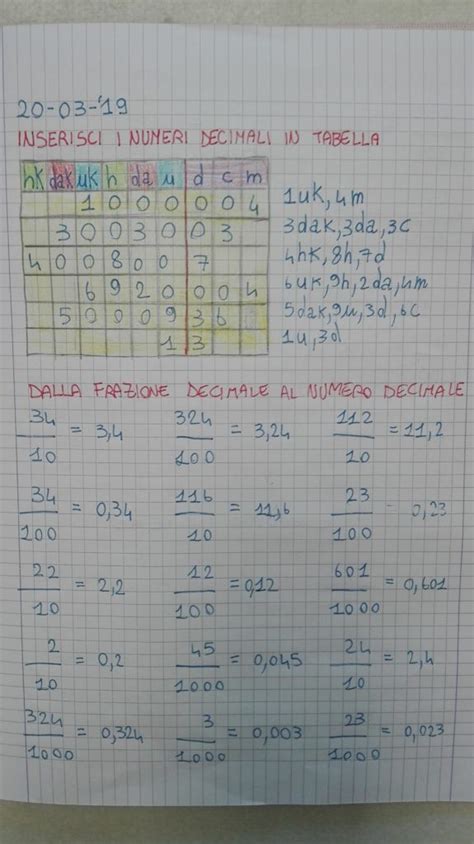 20-03-'19
INSERISCI I NUMERI DECIMALI IN TABELLA
hk dak uk h da u d c m
1 0 0 0 0 0 4 1uk, 4m
3 0 0 3 0 0 3 3dak, 3da, 3c
4 0 0 8 0 0 7 4hk, 8h, 7d
6 9 2 0 0 0 4 6uk, 9h, 2da, 4m
5 0 0 0 9 3 6 5dak, 9u, 3d, 6c
1 3 1u, 3d
DALLA FRAZIONE DECIMALE AL NUMERO DECIMALE
34/10 = 3,4 324/100 = 3,24 112/10 = 11,2
34/100 = 0,34 116/10 = 11,6 23/100 = 0,23
22/10 = 2,2 12/100 = 0,12 601/1000 = 0,601
2/10 = 0,2 45/1000 = 0,045 24/10 = 2,4
324/1000 = 0,324 3/1000 = 0,003 23/1000 = 0,023